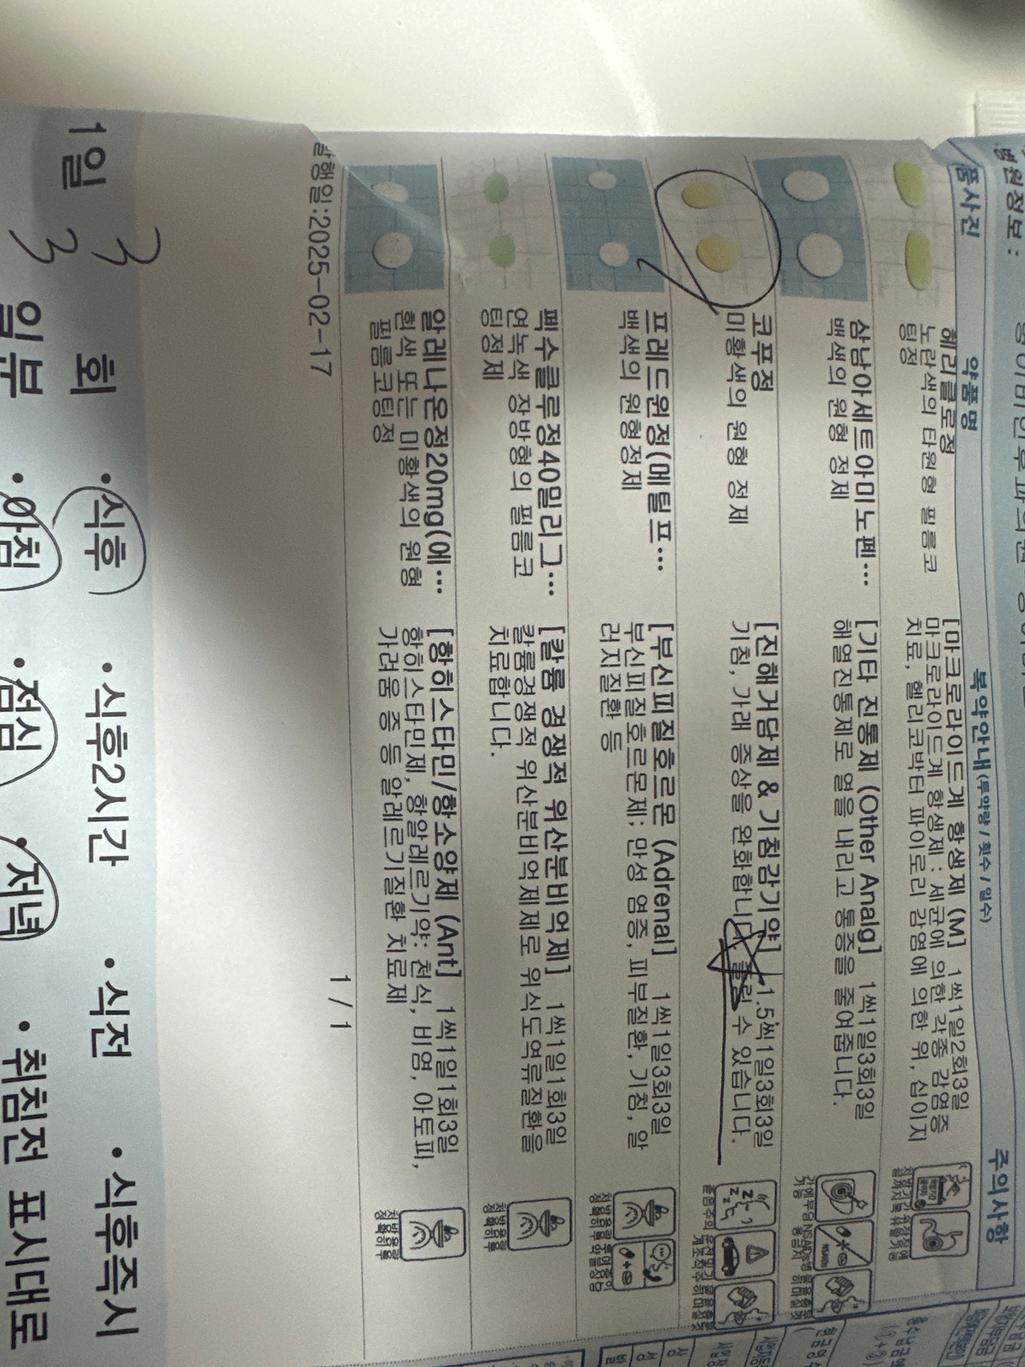 병원정보 :
품사진 약품명 복약안내(투약량 / 횟수 / 일수) 주의사항
헤리클로정
노란색의 타원형 필름코
팅정
[마크로라이드계 항생제 (M] 1씩1일2회3일
마크로라이드계 항생제: 세균에 의한 각종 감염증
치료, 헬리코박터 파이로리 감염에 의한 위, 십이지
삼남아세트아미노펜…
백색의 원형 정제
[기타 진통제 (Other Analg] 1씩1일3회3일
해열진통제로 열을 내리고 통증을 줄여줍니다.
코푸정
미황색의 원형 정제
[진해거담제 & 기침감기약] 1.5씩1일3회3일
기침, 가래 증상을 완화합니다. 졸릴 수 있습니다.
프레드원정(메틸프…
백색의 원형정제
[부신피질호르몬 (Adrenal] 1씩1일3회3일
부신피질호르몬제: 만성 염증, 피부질환, 기침, 알
러지질환 등
펙수클루정40밀리그…
연녹색 장방형의 필름코
팅정제
[칼륨 경쟁적 위산분비억제] 1씩1일1회3일
칼륨경쟁적 위산분비억제제로 위식도역류질환을
치료합니다.
알레나온정20mg(에…
흰색 또는 미황색의 원형
필름코팅정
[항히스타민/항소양제 (Ant] 1씩1일1회3일
항히스타민제, 항알레르기약: 천식, 비염, 아토피,
가려움증 등 알레르기질환 치료제
발행일:2025-02-17
1 / 1
1일 3 회 •식후 •식후2시간 •식전 •식후즉시
3 일분 •아침 •점심 •저녁 •취침전 표시대로